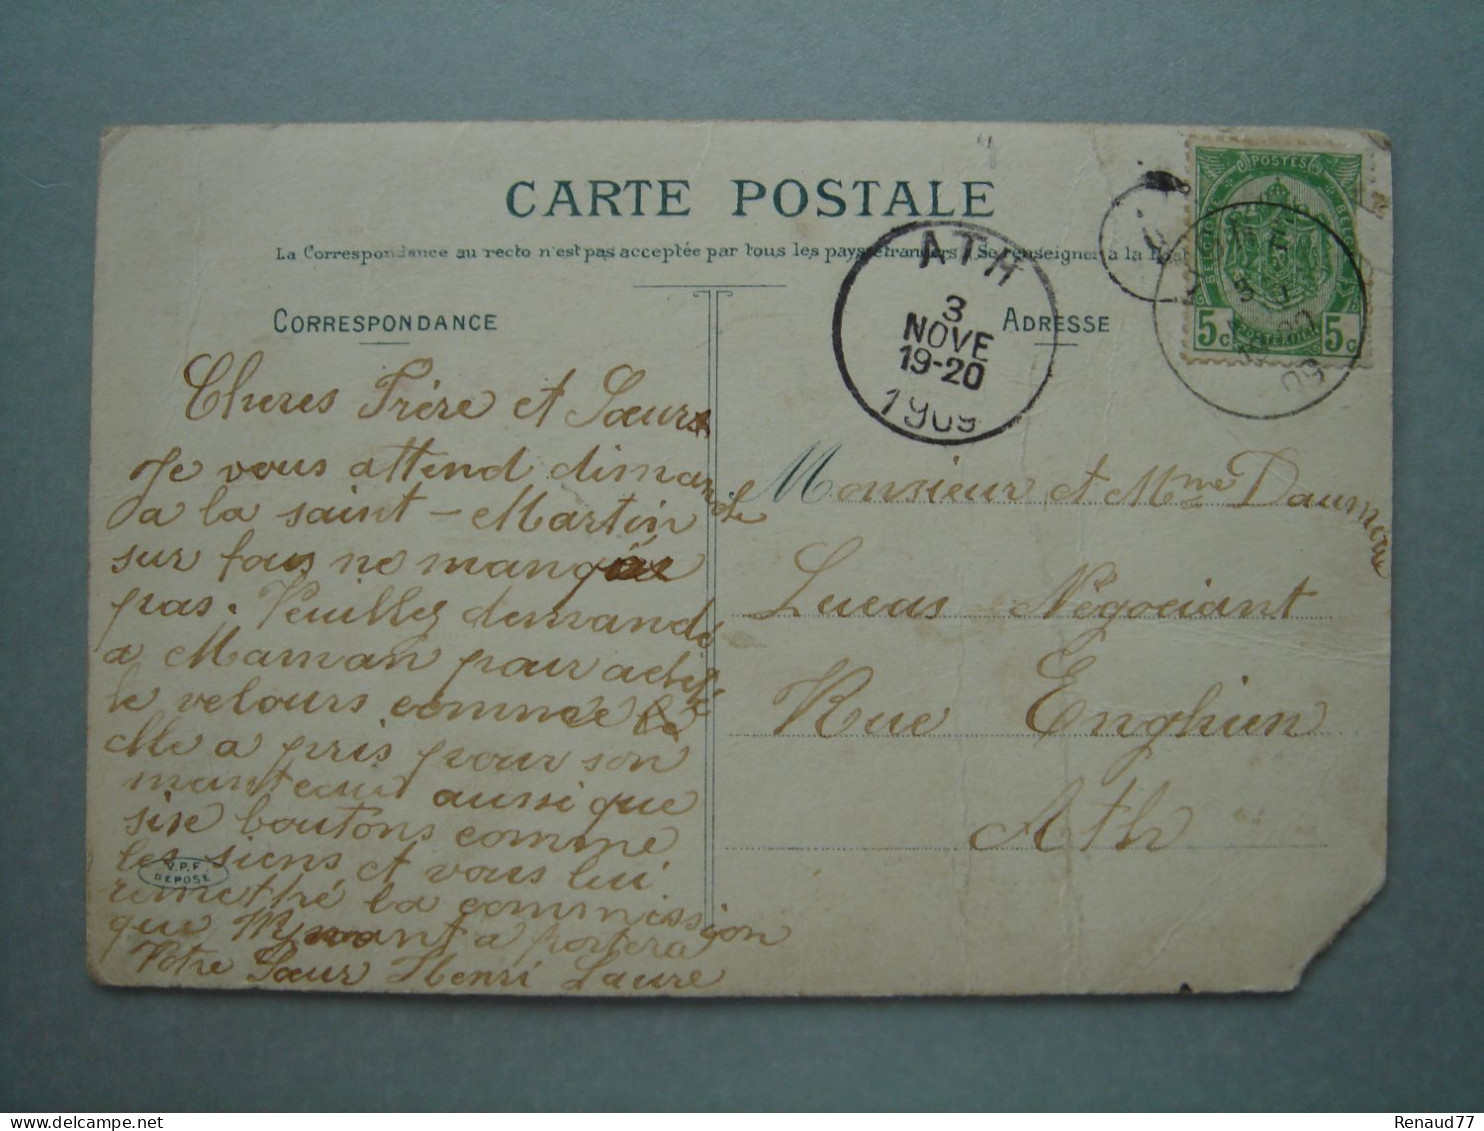 CARTE POSTALE
La Correspondance au recto n'est pas acceptée par tous les pays étrangers (Se renseigner à la
CORRESPONDANCE
ADRESSE
ATH
3
NOVE
19-20
1909
POSTES
BELGIQUE
5c 5c
09
Cheres Frère et Sœurs
Je vous attend dimanche
a la saint-Martin
sur tous ne manquée
pas. Veuillez demandé
a Maman pour acheté
le velours comme
elle a pris pour son
manteau aussi que
sixe boutons comme
les siens et vous lui
remettré la commission
que portera
Votre Sœur Henri Laure
V.P.F.
DEPOSE
Monsieur et Mme Daumerie
Lucas Négociant
Rue Enghien
Ath
Renaud77